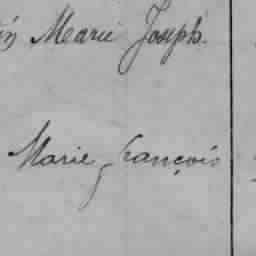 Marie Joseph.
Marie François